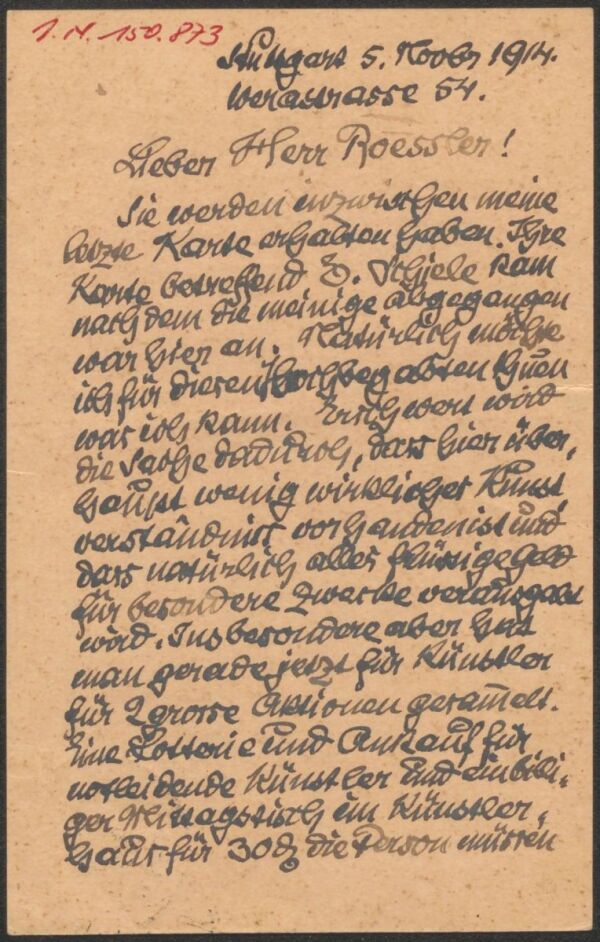 I. N. 150.873
Stuttgart 5. Novbr 1914.
Werastrasse 54.
Lieber Herr Roessler!
Sie werden inzwischen meine
letzte Karte erhalten haben. Ihre
Karte betreffend E. Schiele kam
nachdem die meinige abgegangen
war hier an. Natürlich möchte
ich für diesen Hochbegabten thuen
was ich kann. Erschwert wird
die Sache dadurch, dass hier über-
haupt wenig wirkliches Kunst-
verständniss vorhanden ist und
dass natürlich alles flüssige Geld
für besondere Zwecke verausgabt
wird. Insbesondere aber hat
man gerade jetzt für Künstler
für 2 grosse Aktionen gesam̅elt.
Eine Lotterie und Ankauf für
notleidende Künstler und ein billi-
ger Mittagstisch im Künstler-
haus für 30 ₰ die Person müssen